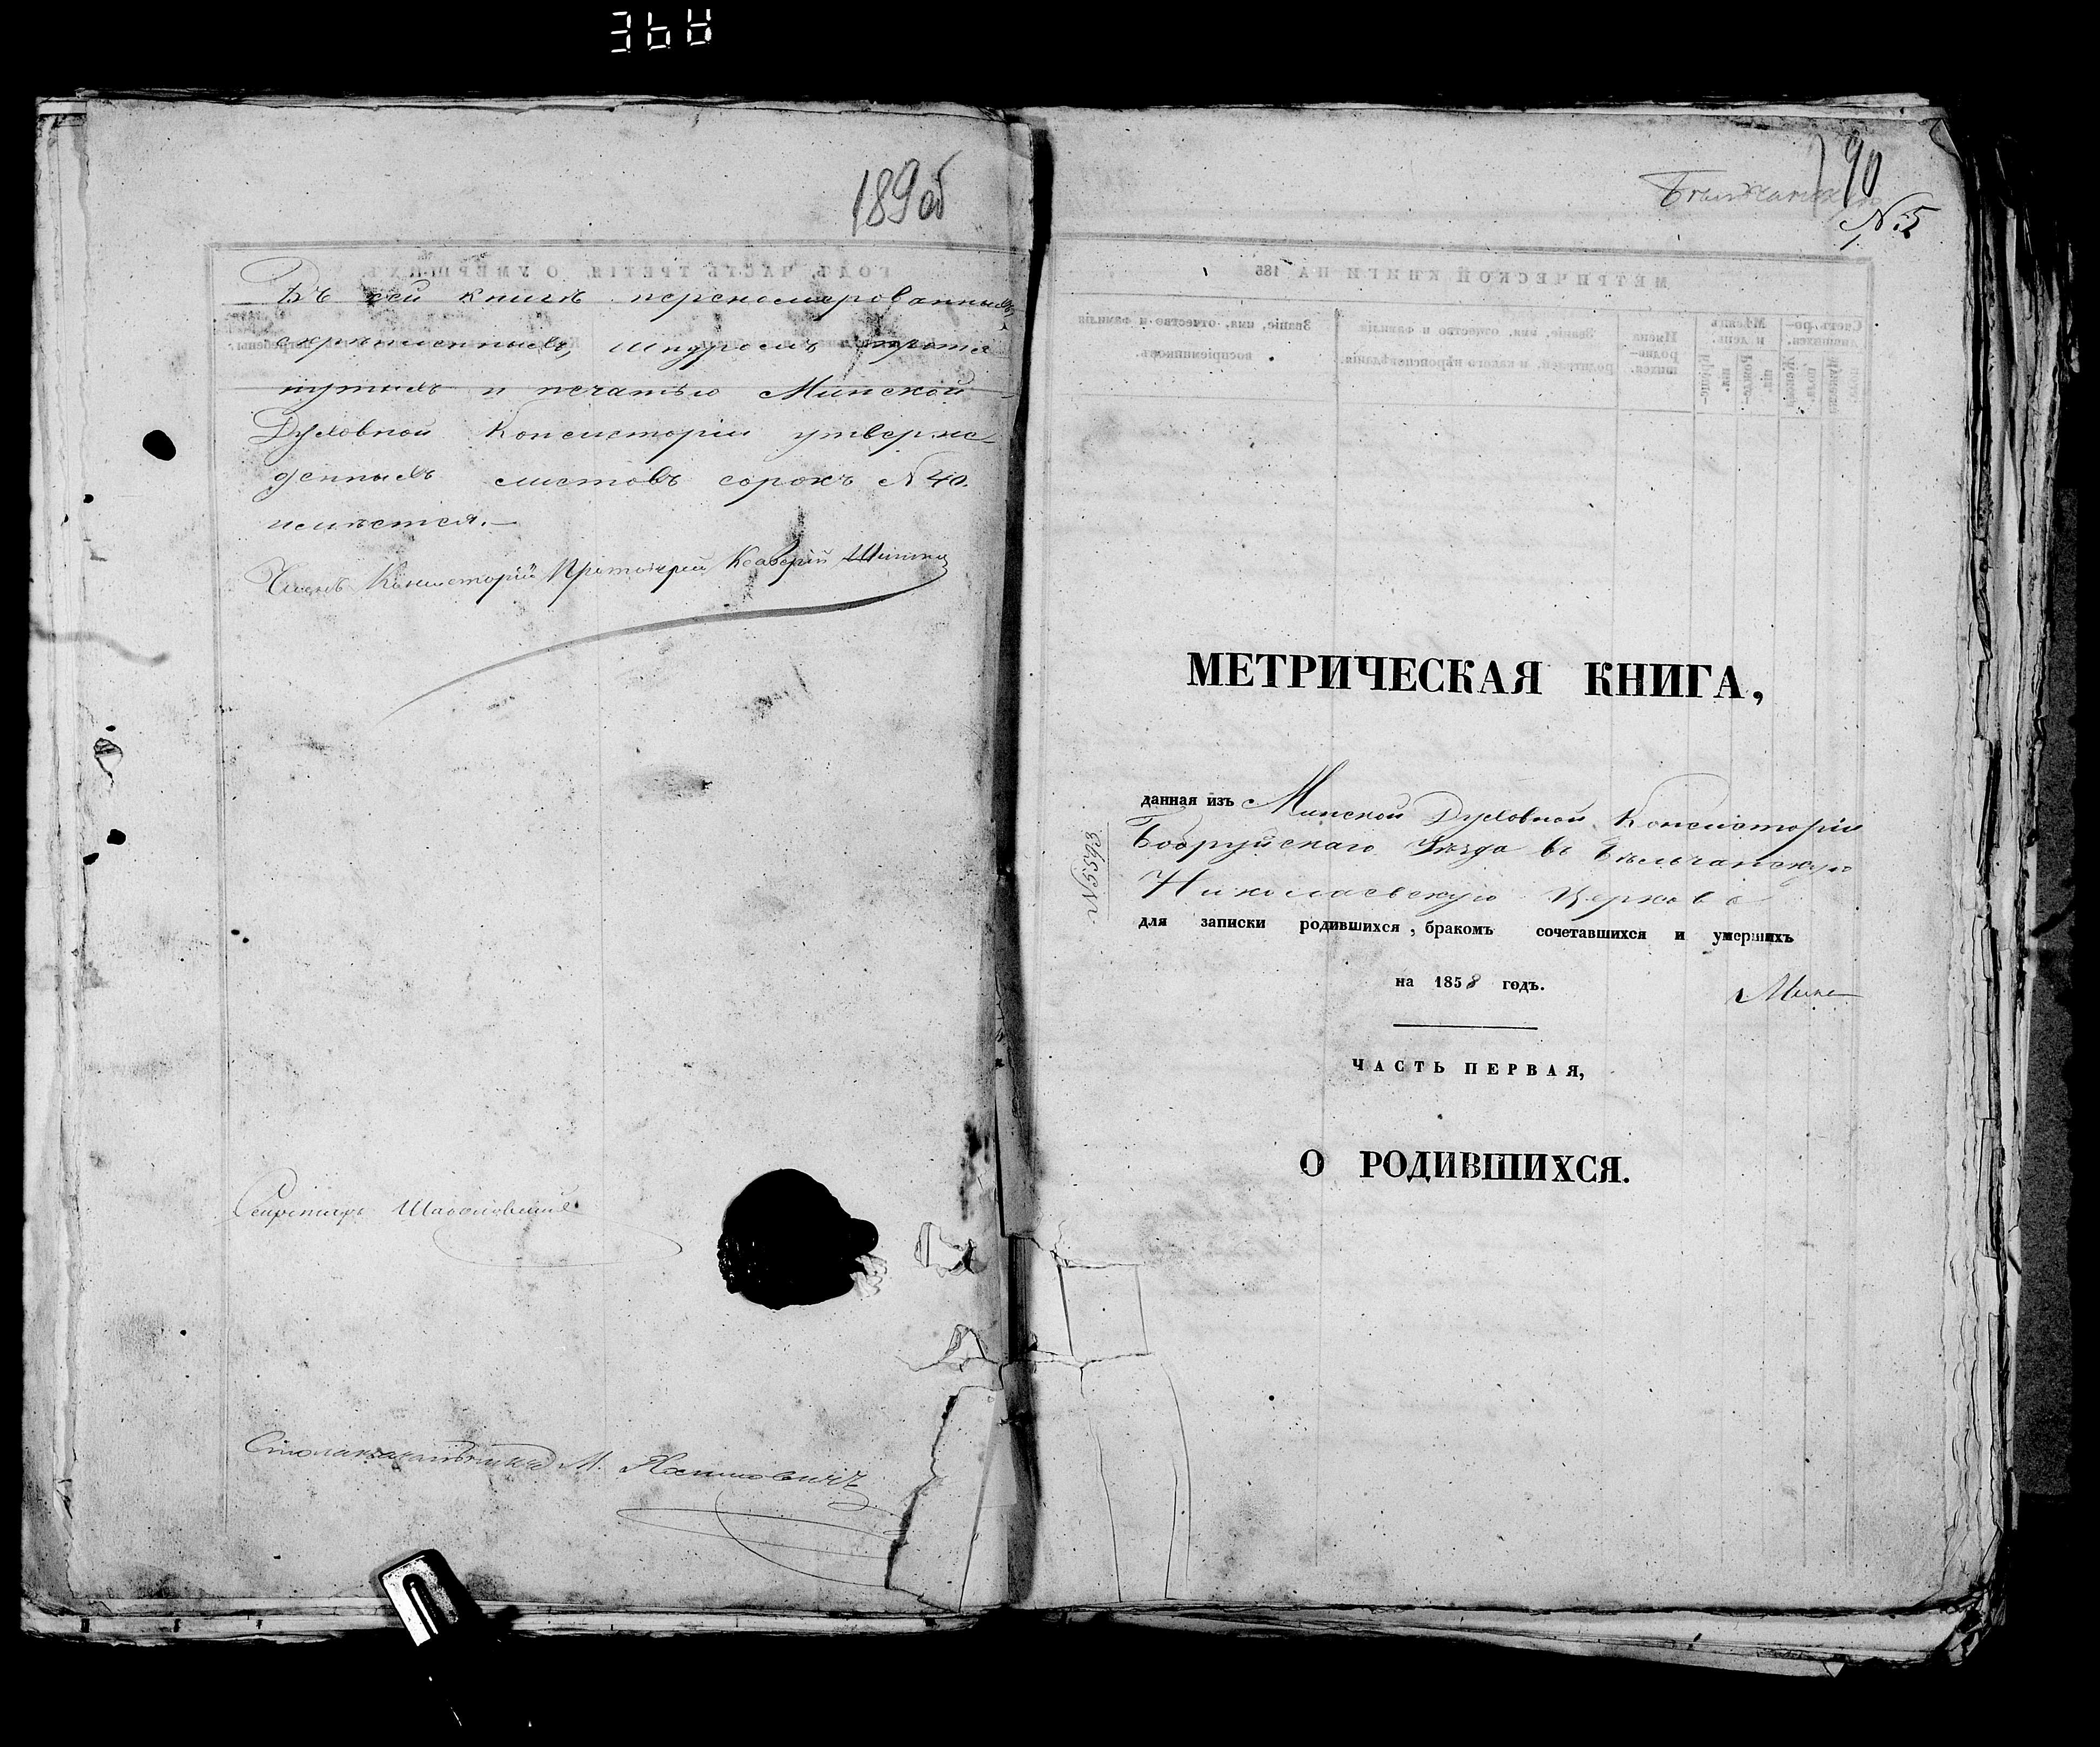 189об
Въ сей книгѣ перенумерованныхъ,
скрѣпленныхъ, шнуромъ протя
нутыхъ и печатью Минской
Духовной Консисторіи утверж-
денныхъ листовъ сорокъ N 40.
имѣется.—
Членъ Консисторіи Протоіерей Ксаверій
Секретарь
Столоначальникъ М.
190
N. 5
МЕТРИЧЕСКАЯ КНИГА,
данная изъ Минской Духовной Консисторіи
Бобруйскаго Уѣзда въ Бѣльчанскую
Николаевскую Церковь
N 5593
для записки родившихся, бракомъ сочетавшихся и умершихъ
на 1858 годъ.
ЧАСТЬ ПЕРВАЯ,
О РОДИВШИХСЯ.